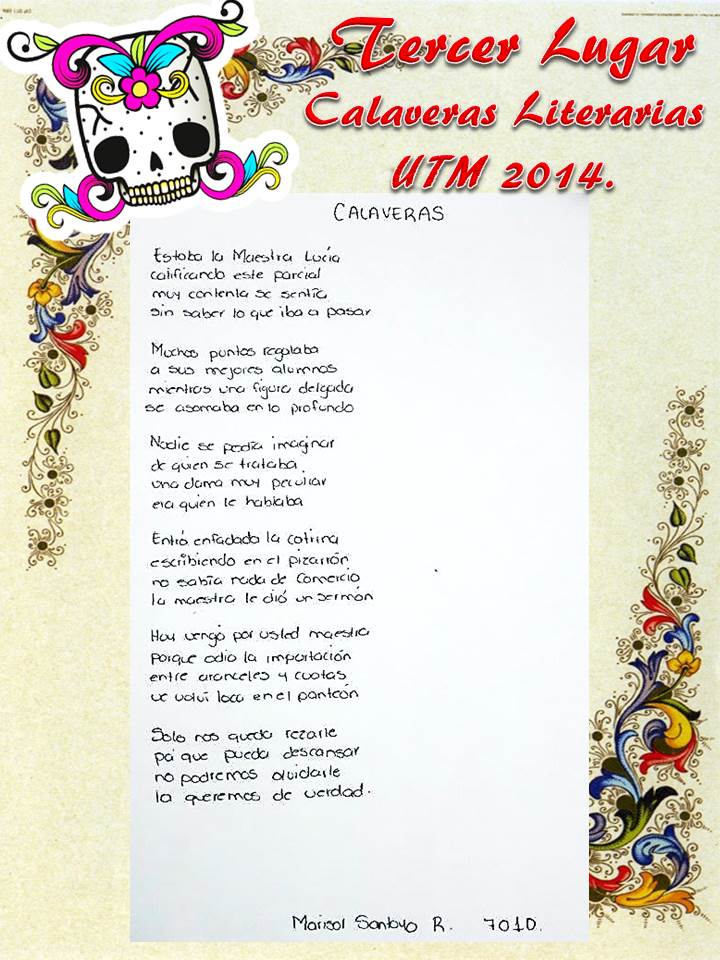 Tercer Lugar
Calaveras Literarias
UTM 2014.
CALAVERAS
Estaba la Maestra Lucía
calificando este parcial
muy contenta se sentía
sin saber lo que iba a pasar
Muchos puntos regalaba
a sus mejores alumnos
mientras una figura delgada
se asomaba en lo profundo
Nadie se podía imaginar
de quien se trataba
una dama muy peculiar
era quien le hablaba
Entró enfadada la catrina
escribiendo en el pizarrón
no sabía nada de Comercio
la maestra le dió un sermón
Hoy vengo por usted maestra
porque odio la importación
entre aranceles y cuotas
me volví loca en el panteón
Solo nos queda rezarle
pa' que pueda descansar
no podremos olvidarle
la queremos de verdad.
Marisol Santoyo R. 701D.